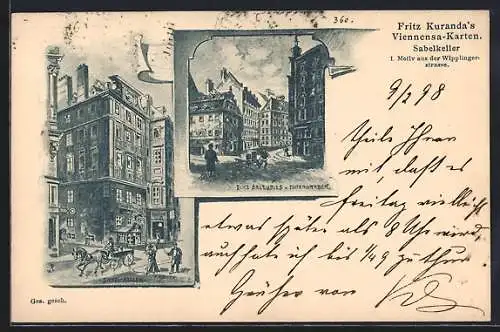 360.
Fritz Kuranda's
Viennensa-Karten.
Sabelkeller
1. Motiv aus der Wipplinger-
strasse.
9/2 98
theile Ihnen
mit daß es
Freitag vielleicht
etwas später als 8 Uhr wird,
auch habe ich bis 1/4 9 zu thun.
Grüßer von
Ges. gesch.